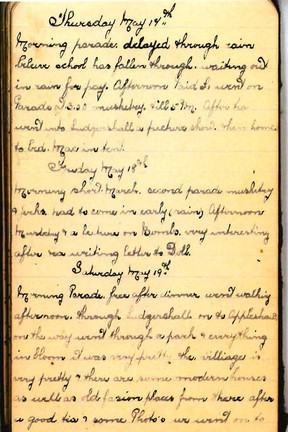 Thursday May 17th
Morning parade, delayed through rain
school has fallen through, waiting out
in rain for pay. Afternoon Paid I. went on
Parade 2.30 musketry till 5 PM. After tea
went into Ludgershall a picture show. Then home
to bed. Mac in tent.
Friday May 18th
Morning short March, second parade musketry
& jerks, had to come in early (rain) Afternoon
& a lecture on Bombs, very interesting
after tea writing Letter to Doll.
Saturday May 19th
Morning Parade, free after dinner went walking
afternoon, through Ludgershall on to Appleshaw
on the way went through a park & everything
in bloom it was very pretty the villiage is
very pretty & there are some modern houses
as well as old fasion places from there after
a good tea & some Photo's we went on to